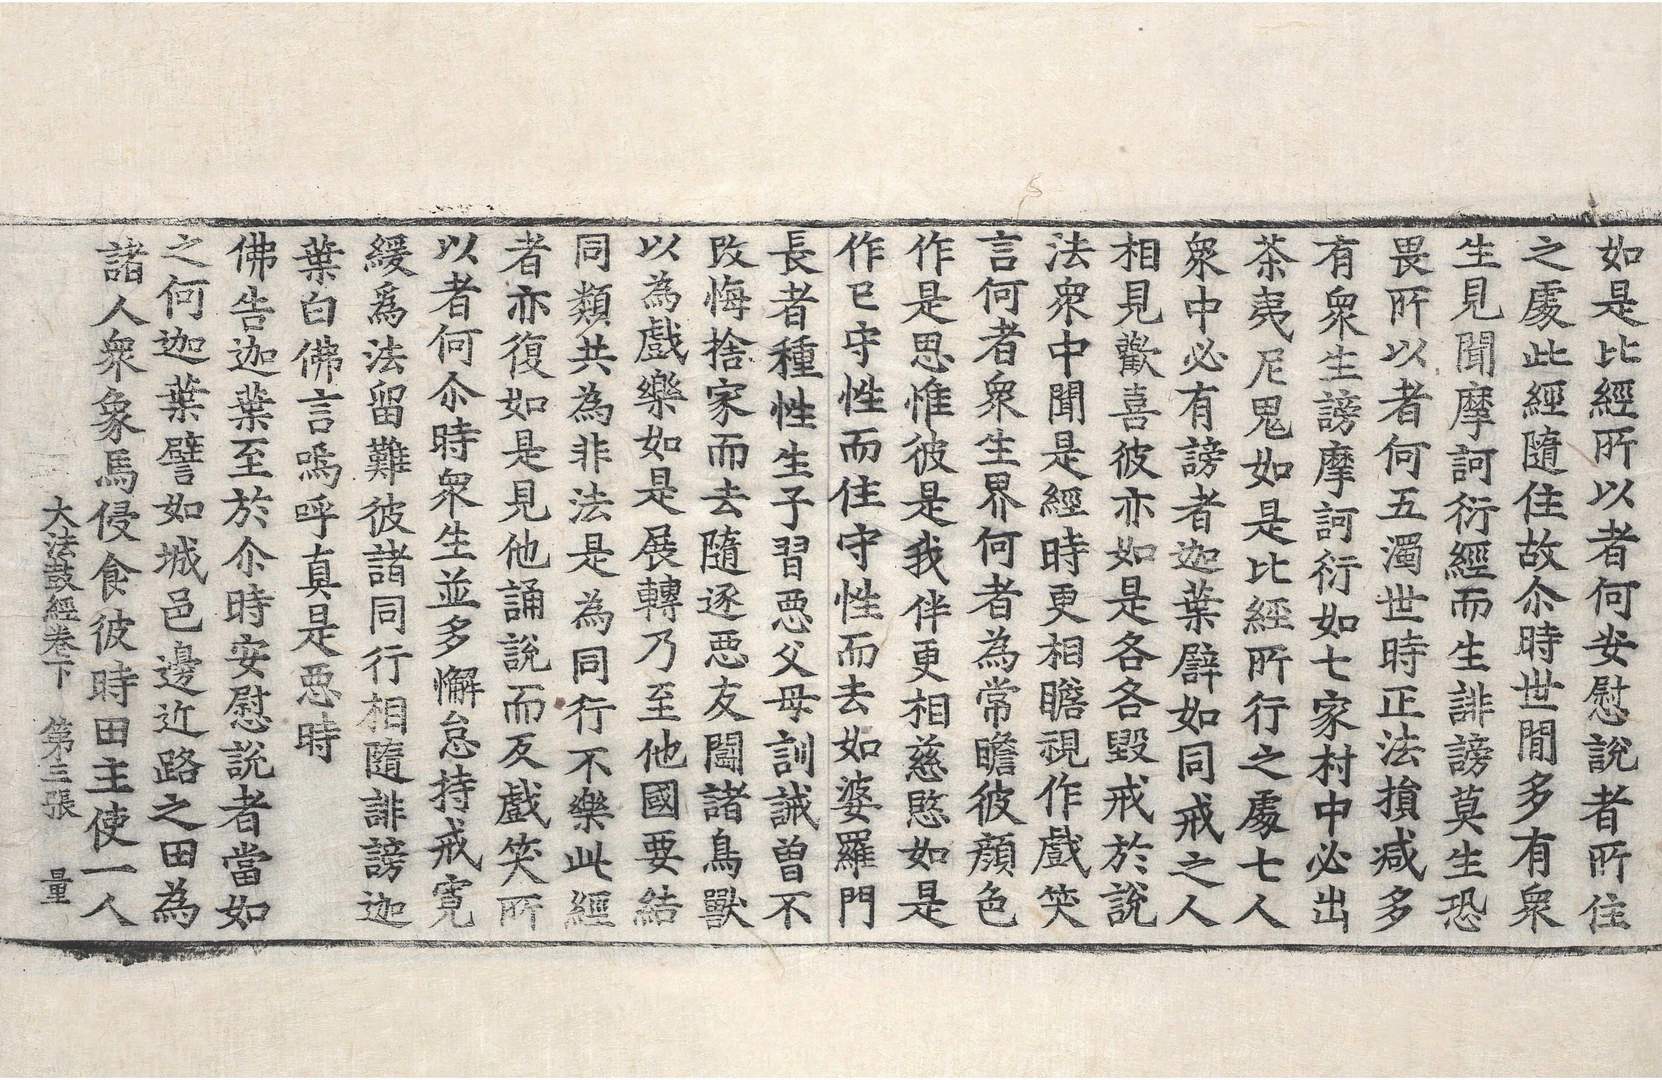 如是比經所以者何安慰說者所住
之處此經隨住故尒時世間多有衆
生見聞摩訶衍經而生誹謗莫生恐
畏所以者何五濁世時正法損減多
有衆生謗摩訶衍如七家村中必出
茶夷尼鬼如是比經所行之處七人
衆中必有謗者迦葉辟如同戒之人
相見歡喜彼亦如是各各毀戒於說
法衆中聞是經時更相瞻視作戲笑
言何者衆生界何者為常瞻彼顏色
作是思惟彼是我伴更相慈愍如是
作已守性而住守性而去如婆羅門
長者種性生子習惡父母訓誡曽不
改悔捨家而去隨逐惡友鬪諸鳥獸
以為戲樂如是展轉乃至他國要結
同類共為非法是為同行不樂此經
者亦復如是見他誦說而反戲笑所
以者何尒時衆生並多懈怠持戒寬
緩爲法留難彼諸同行相隨誹謗迦
葉白佛言嗚呼真是惡時
佛告迦葉至於尒時安慰說者當如
之何迦葉譬如城邑邊近路之田為
諸人衆象馬侵食彼時田主使一人
大法鼓經卷下 第三張 量